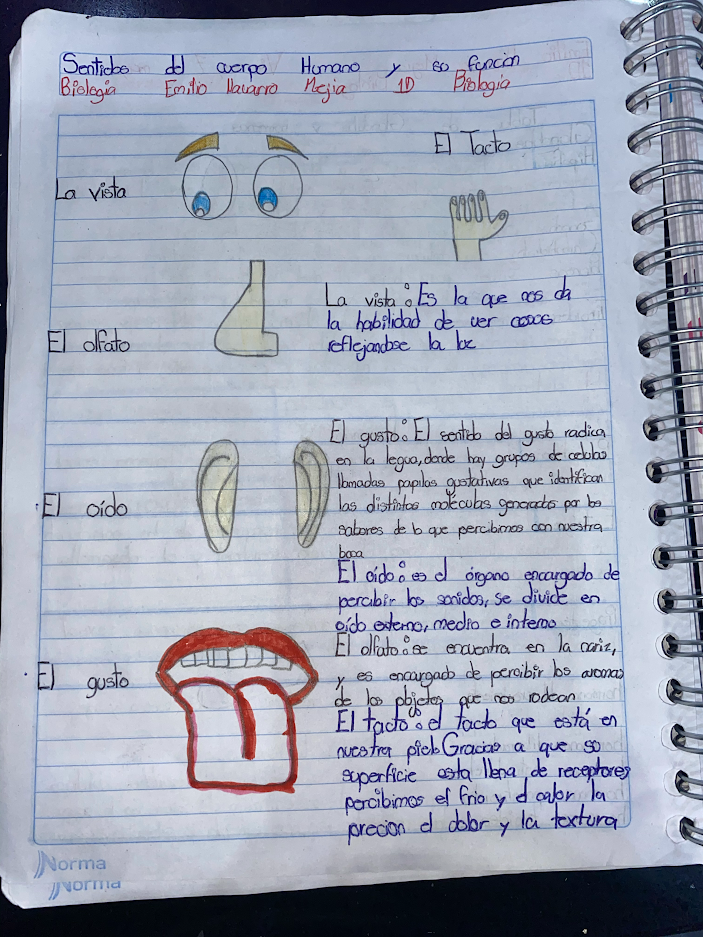 Sentidos del cuerpo Humano y so función
Biologia Emilio Navarro Mejia 1D Biología
El Tacto
La vista
La vista: Es la que nos da
la habilidad de ver cosas
reflejandose la luz
El olfato
El gusto: El sentido del gusto radica
en la legua, donde hay grupos de celulas
llamadas papilas gustativas que identifican
las distintas moléculas generadas por los
sabores de lo que percibimos con nuestra
boca
El oído
El oído: es el órgano encargado de
percibir los sonidos, se divide en
oído externo, medio e interno
El olfato: se encuentra en la nariz,
y es encargado de percibir los aromas
de los objetos que nos rodean
El gusto
El tacto: el tacto que está en
nuestra piel. Gracias a que so
superficie esta llena de receptores
percibimos el frio y el calor la
precion el dolor y la textura
Norma
Norma